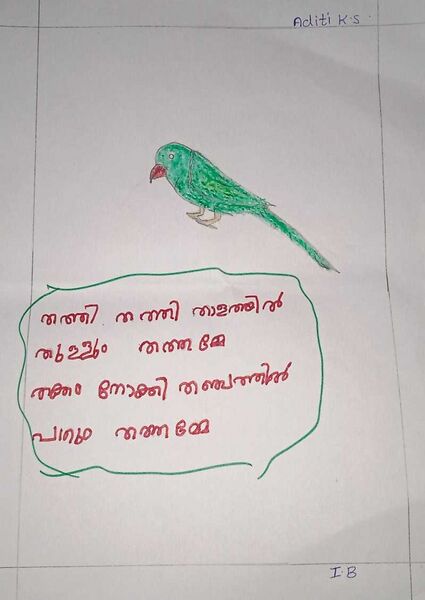 Aditi K.S.
തത്തി തത്തി താളത്തിൽ
തുള്ളും തത്തമ്മേ
തക്കം നോക്കി തഞ്ചത്തിൽ
പാറും തത്തമ്മേ
I.B